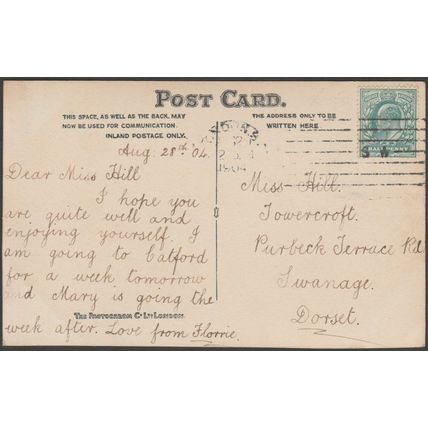 POST CARD.
THIS SPACE, AS WELL AS THE BACK, MAY
NOW BE USED FOR COMMUNICATION.
INLAND POSTAGE ONLY.
THE ADDRESS ONLY TO BE
WRITTEN HERE
Aug. 28th 04.
Dear Miss Hill
I hope you
are quite well and
enjoying yourself. I
am going to Catford
for a week tomorrow
and Mary is going the
week after. Love from Florrie.
THE PHOTOCHROM Co LTD LONDON.
1904
HALFPENNY
Miss Hill.
Towercroft.
Purbeck Terrace Rd
Swanage.
Dorset.